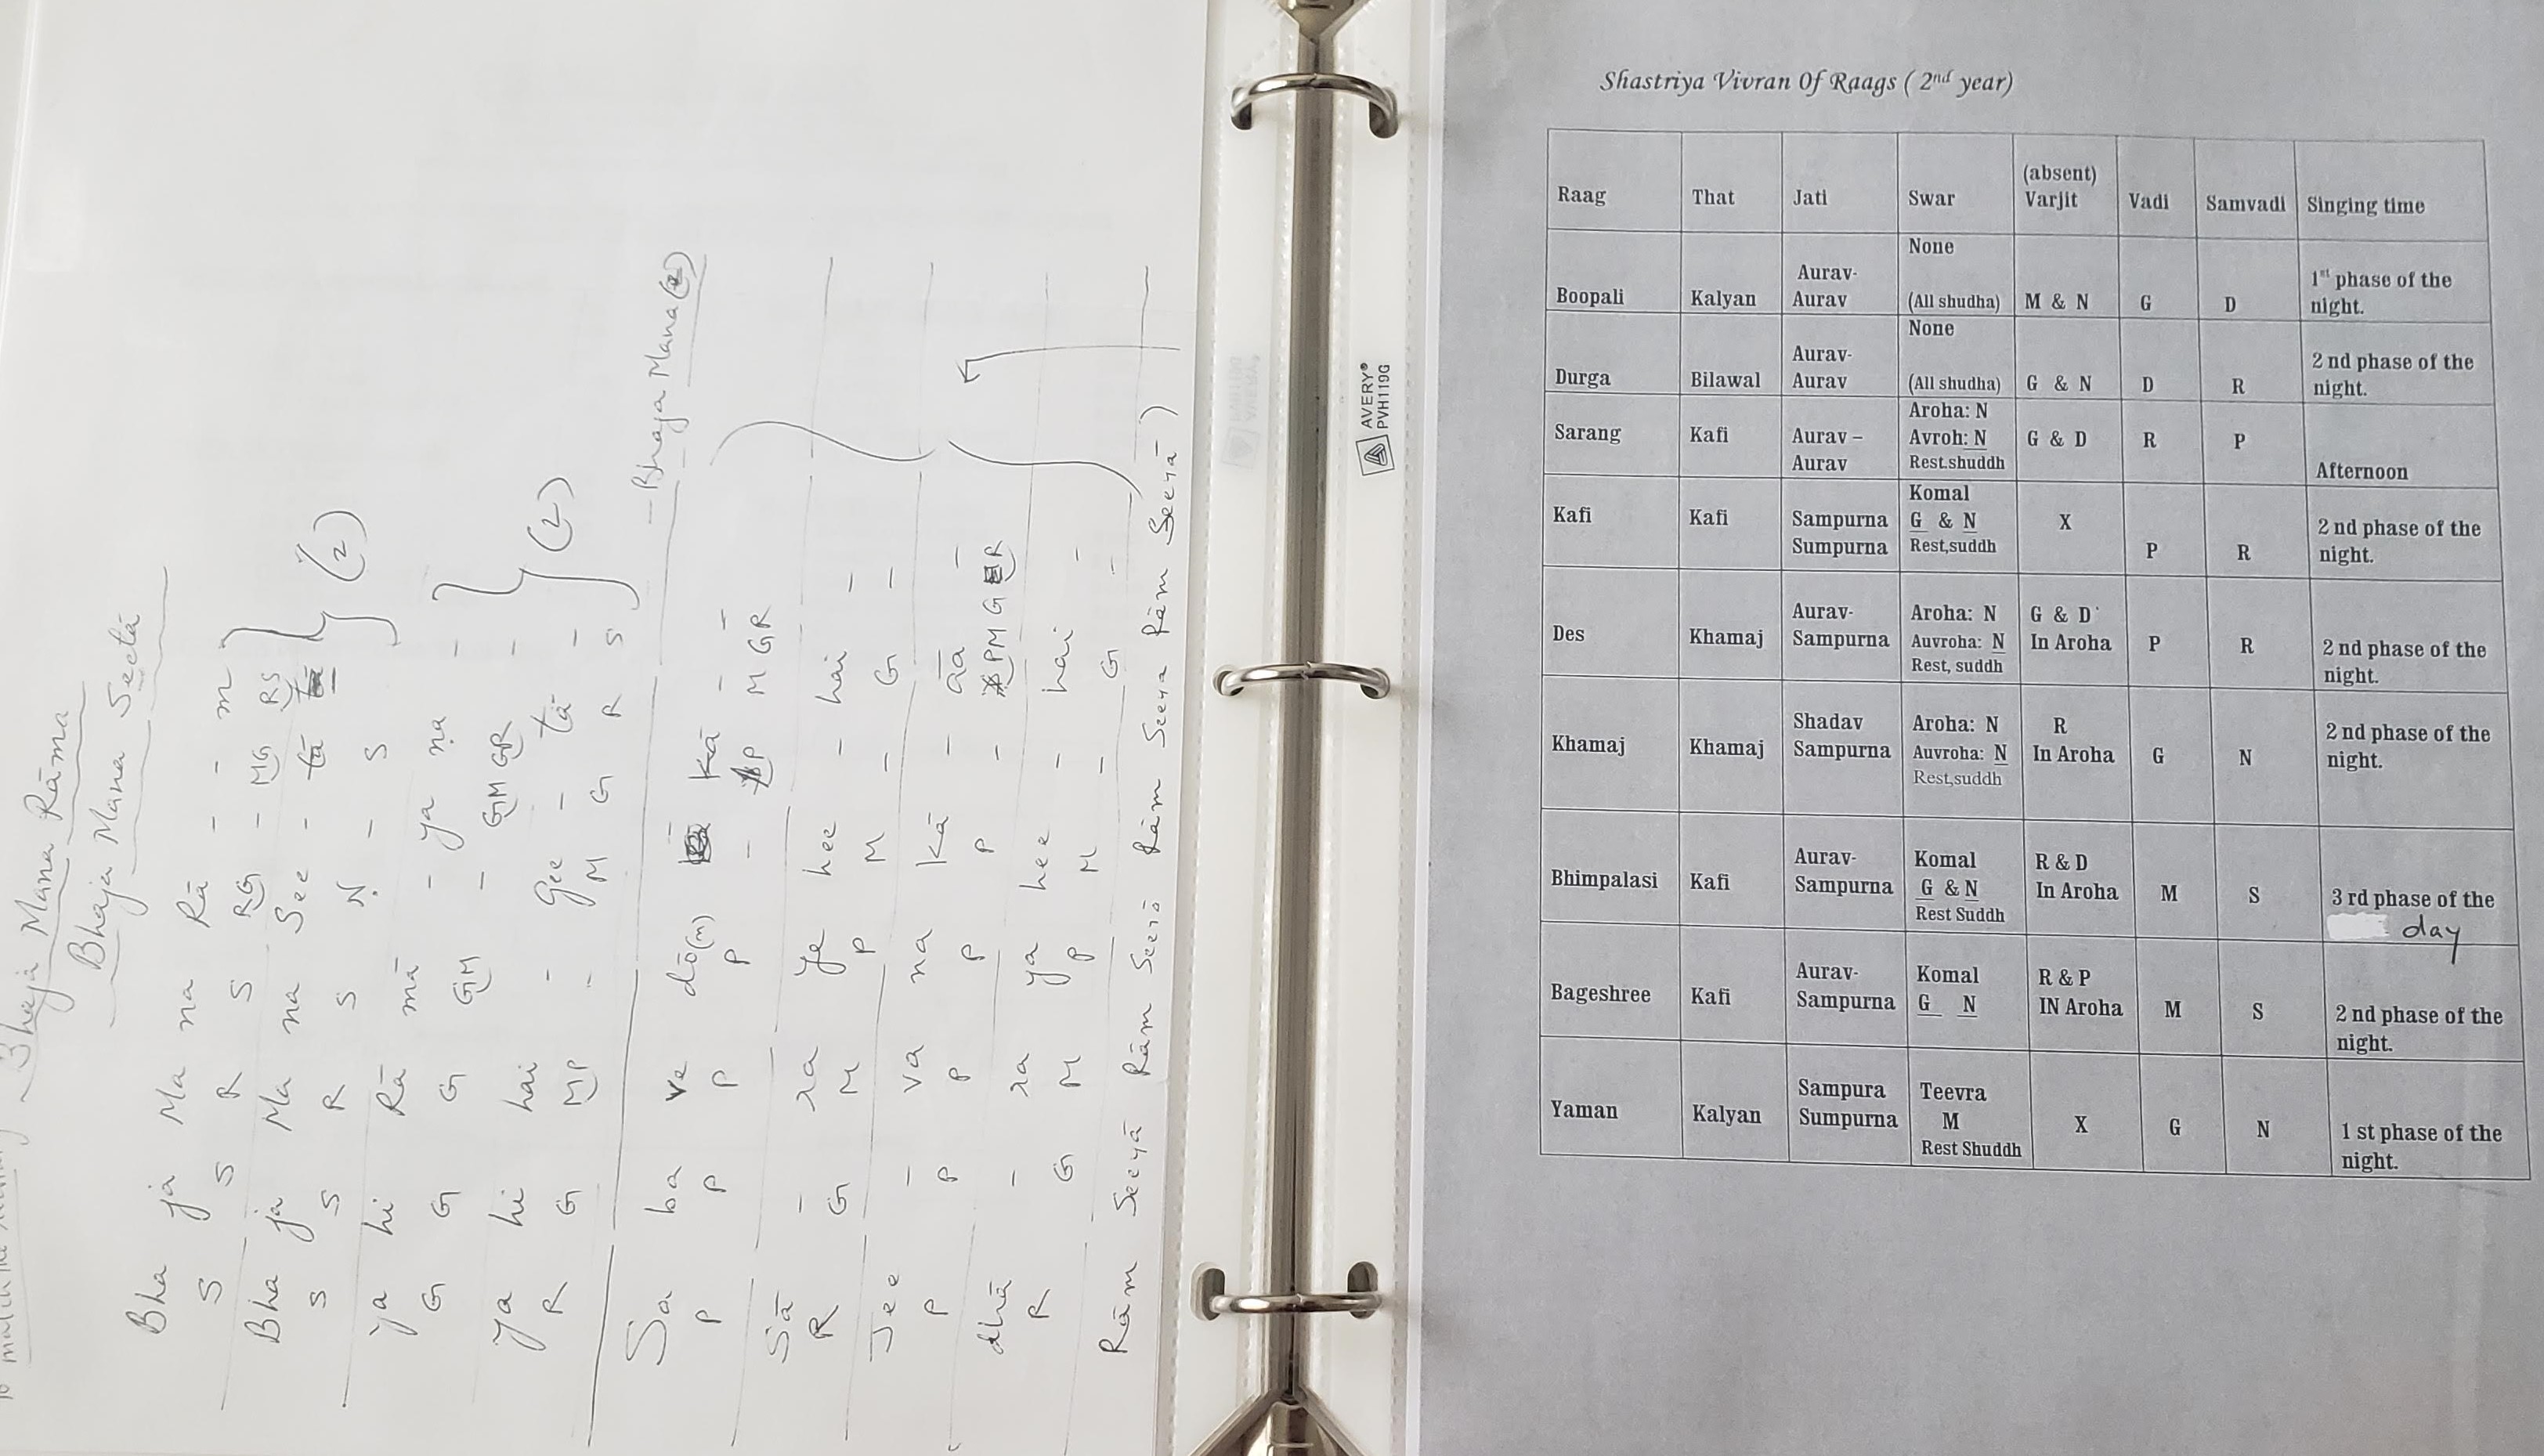 Bhaja Mana Rāma
Bhaja Mana Seetā
Bha ja Ma na Rā - - m
S S R S RG - MG RS
Bha ja Ma na See - tā
S S R S Ṇ - S
ya hi Rā mā - ya ṇa -
G G G GM - GM GR -
ya hi hai - Gee - tā -
R G MP - M G R S
} (2)
} (2)
- Bhaja Mana (2)
Sa ba ve dō(n) kā - -
P P P P - P M GR
Sā - ra ye hee - hai -
R G M P M - G -
Jee - va na kā - āa -
P P P P P - PM G R
dhā - ra ya hee - hai -
R G M P M - G -
Rām Seeyā Rām Seeiā Rām Seeya Rām Seeiā )
AVERY®
PVH119G
Shastriya Vivran Of Raags ( 2nd year)
Raag That Jati Swar (absent) Varjit Vadi Samvadi Singing time
Boopali Kalyan Aurav-Aurav None (All shudha) M & N G D 1st phase of the night.
Durga Bilawal Aurav-Aurav None (All shudha) G & N D R 2 nd phase of the night.
Sarang Kafi Aurav – Aurav Aroha: N Avroh: N Rest.shuddh G & D R P Afternoon
Kafi Kafi Sampurna Sumpurna Komal G & N Rest,suddh X P R 2 nd phase of the night.
Des Khamaj Aurav-Sampurna Aroha: N Auvroha: N Rest, suddh G & D In Aroha P R 2 nd phase of the night.
Khamaj Khamaj Shadav Sampurna Aroha: N Auvroha: N Rest,suddh R In Aroha G N 2 nd phase of the night.
Bhimpalasi Kafi Aurav-Sampurna Komal G & N Rest Suddh R & D In Aroha M S 3 rd phase of the day
Bageshree Kafi Aurav-Sampurna Komal G N R & P IN Aroha M S 2 nd phase of the night.
Yaman Kalyan Sampura Sumpurna Teevra M Rest Shuddh X G N 1 st phase of the night.